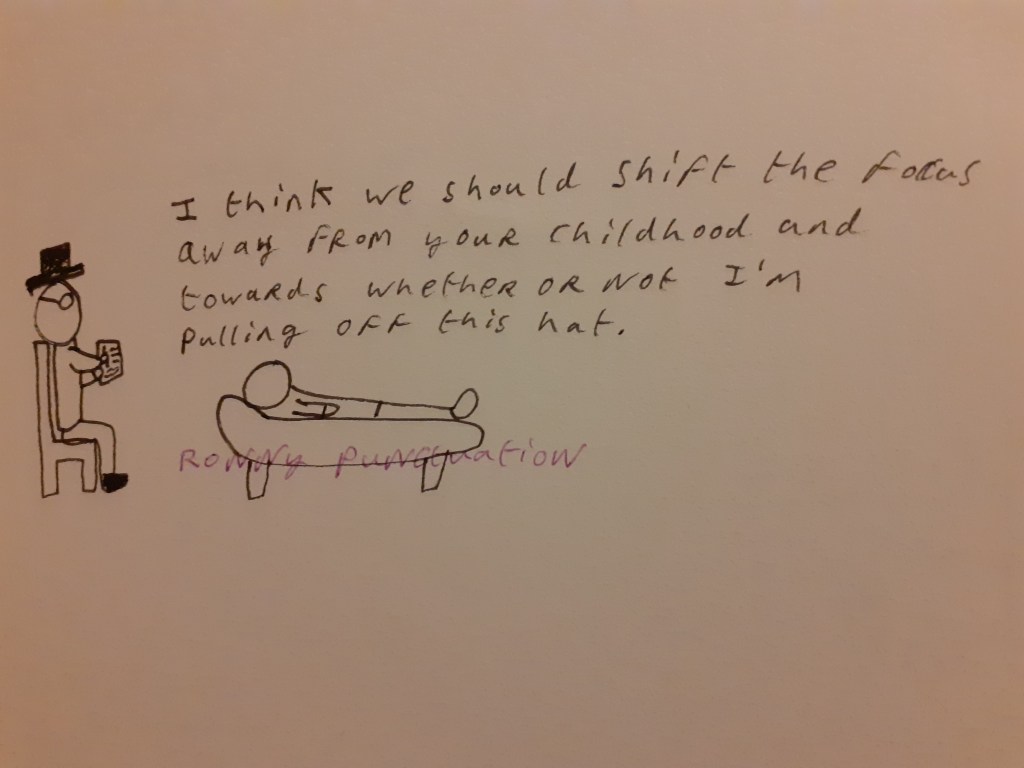 I think we should shift the focus
away from your childhood and
towards whether or not I'm
pulling off this hat.
Ronny Punctuation